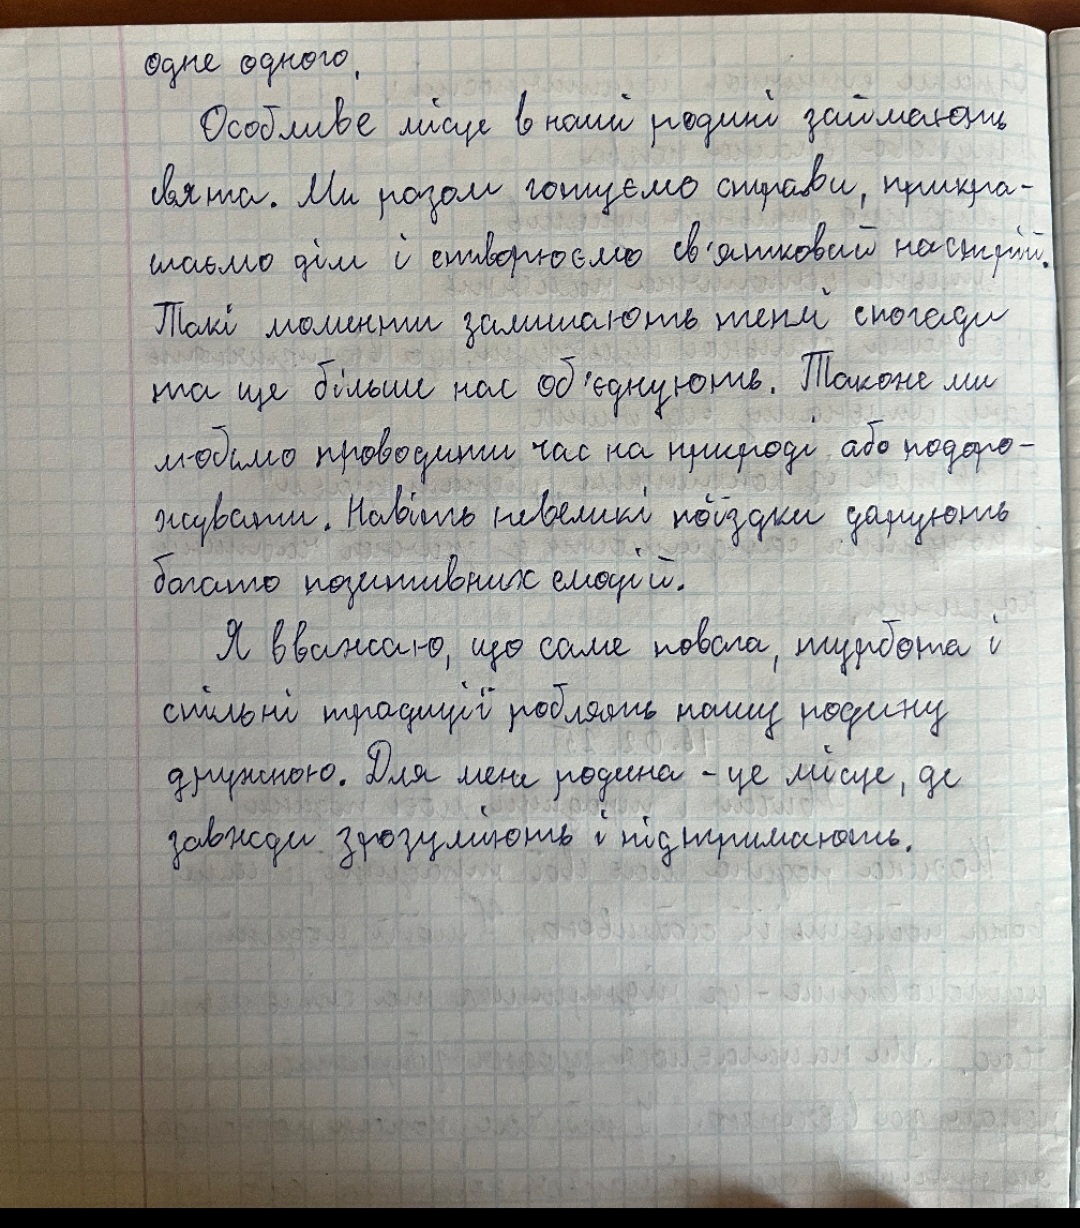 одне одного.
Особливе місце в нашій родині займають
свята. Ми разом готуємо страви, прикра-
шаємо дім і створюємо св'ятковий настрій.
Такі моменти залишають теплі спогади
та ще більше нас об'єднують. Також ми
любимо проводити час на природі або подоро-
жувати. Навіть невеликі поїздки дарують
багато позитивних емоцій.
Я вважаю, що саме повага, турбота і
спільні традиції роблять нашу родину
дружною. Для мене родина - це місце, де
завжди зрозуміють і підтримають.